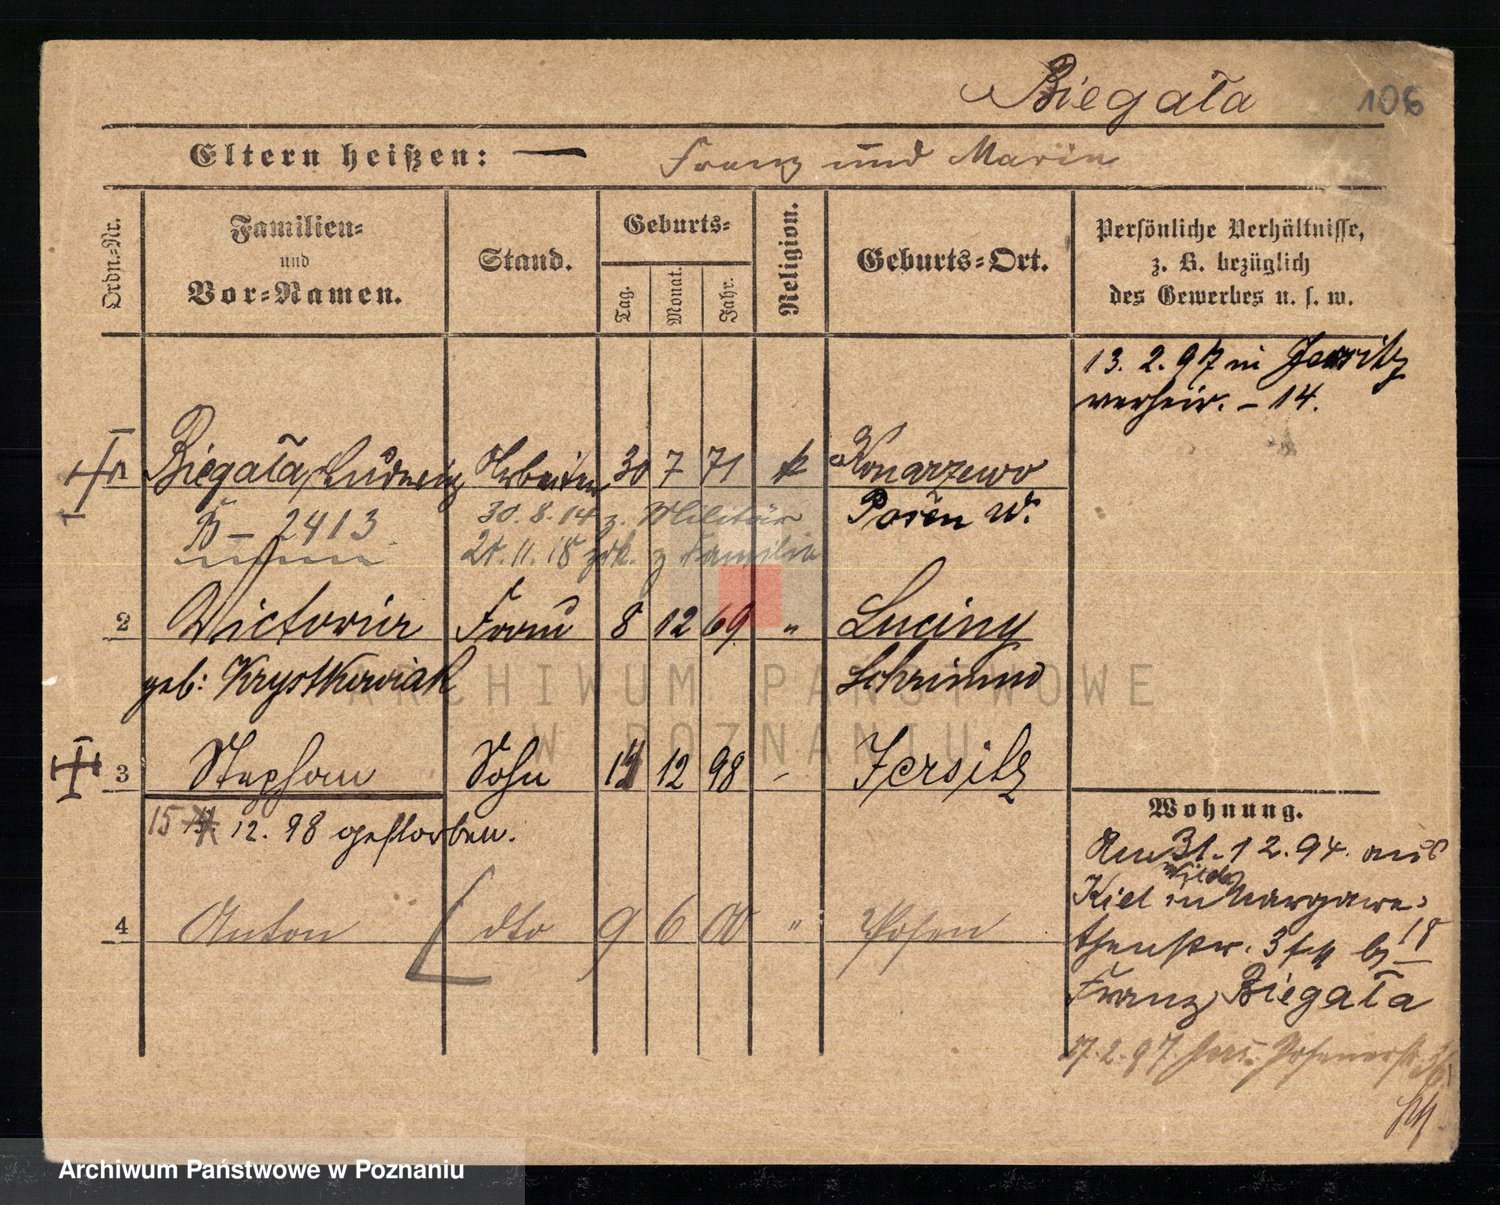 Biegała 106
Eltern heißen: — Franz und Maria
Ordn.-Nr.
Familien-
und
Vor-Namen.
Stand.
Geburts-
Tag.
Monat.
Jahr.
Religion.
Geburts-Ort.
Persönliche Verhältnisse,
z. B. bezüglich
des Gewerbes u. s. w.
13. 2. 97 in Jersitz
verheir. – 14.
1 Biegała, Ludwig Arbeiter 30 7 71 k Konarzewo
B – 2413 30. 8. 14 z. Militär Posen W.
21. 11. 18 zrk. z Familie
2 Victoria Frau 8 12 69 " Luciny
geb: Krystkowiak Schrimm
3 Stephan Sohn 14 12 98 - Jersitz
15 12. 98 gestorben.
4 Anton dto 9 6 00 " Posen
Wohnung.
Am 31. 12. 94. aus
Wilda
Kiel in Margare-
thenstr. 3 b 18
Franz Biegała
17. 2. 97. Posenerstr.
ARCHIWUM PAŃSTWOWE
W POZNANIU
Archiwum Państwowe w Poznaniu